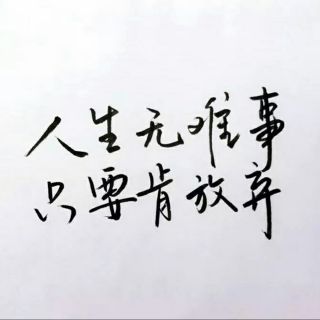 人生无难事
只要肯放弃